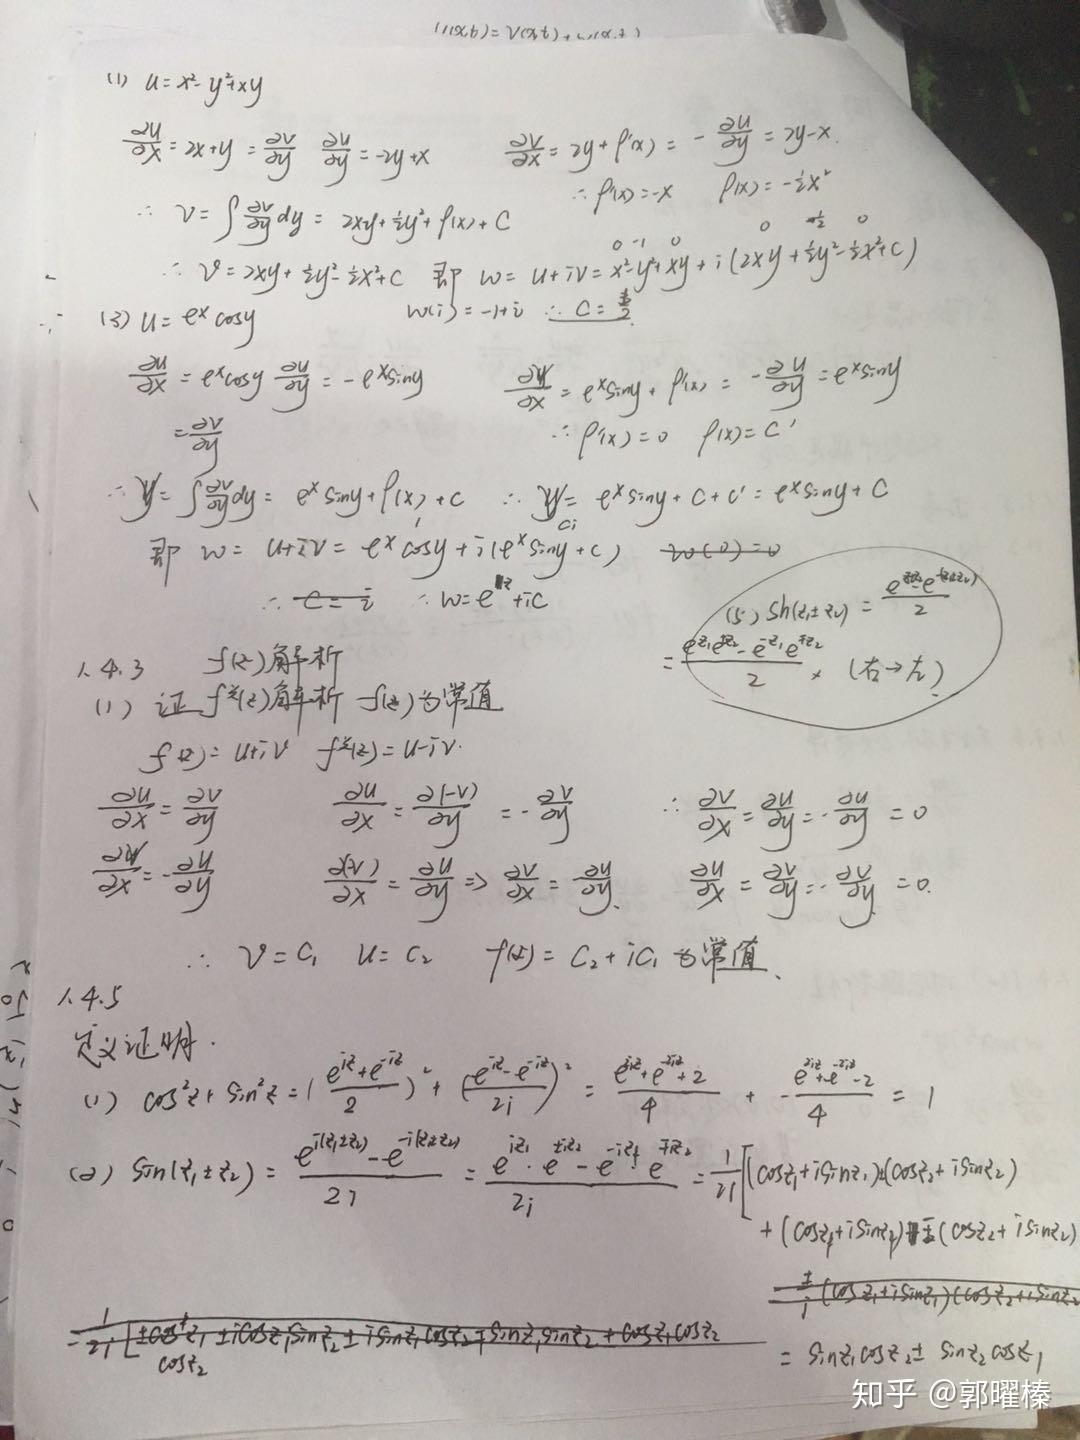 (1) u = x² - y² + xy
∂u/∂x = 2x+y = ∂v/∂y   ∂u/∂y = -2y+x   ∂v/∂x = 2y + ρ'(x) = -∂u/∂y = 2y-x.
∴ ρ'(x) = -x   ρ(x) = -½x²
∴ v = ∫ ∂v/∂y dy = 2xy + ½y² + ρ(x) + C
0 -1 0 0 ½ 0
∴ v = 2xy + ½y² - ½x² + C   即 w = u+iv = x²-y²+xy + i(2xy + ½y² - ½x² + C)
w(i) = -1+i ∴ C = ½
(3) u = eˣcosy
∂u/∂x = eˣcosy   ∂u/∂y = -eˣsiny   ∂v/∂x = eˣsiny + ρ'(x) = -∂u/∂y = eˣsiny
= ∂v/∂y   ∴ ρ'(x) = 0   ρ(x) = C'
∴ v = ∫ ∂v/∂y dy = eˣsiny + ρ(x) + C   ∴ v = eˣsiny + C + C' = eˣsiny + C
Ci
即 w = u+iv = eˣcosy + i(eˣsiny + C)   w(0)=0
∴ C = i   ∴ w = e^z + iC
(5) sh(z₁±z₂) =
= (e^z₁ e^±z₂ - e^-z₁ e^∓z₂)/2 , (右→左)
1.4.3   f(z)解析
(1) 证 f*(z)解析 f(z)为常值
f(z) = u+iv   f*(z) = u-iv.
∂u/∂x = ∂v/∂y   ∂u/∂x = ∂(-v)/∂y = -∂v/∂y   ∴ ∂v/∂x = ∂u/∂y = -∂u/∂y = 0
∂v/∂x = -∂u/∂y   ∂(v)/∂x = ∂u/∂y ⇒ ∂v/∂x = ∂u/∂y.   ∂u/∂x = ∂v/∂y = -∂v/∂y = 0.
∴ v = C₁   u = C₂   f(z) = C₂ + iC₁ 为常值.
1.4.5
定义证明.
(1) cos²z + sin²z = ((e^iz + e^-iz)/2)² + ((e^iz - e^-iz)/2i)² = (e^2iz + e^-2iz + 2)/4 + -(e^2iz + e^-2iz - 2)/4 = 1
(2) sin(z₁±z₂) = (e^i(z₁±z₂) - e^-i(z₁±z₂))/2i = (e^iz₁ · e^±iz₂ - e^-iz₁ · e^∓iz₂)/2i = 1/2i [(cosz₁+isinz₁)±(cosz₂+isinz₂)
+ (cosz₁+isinz₁) ∓ (cosz₂+isinz₂)
= sinz₁cosz₂ ± sinz₂cosz₁
知乎 @郭曜榛